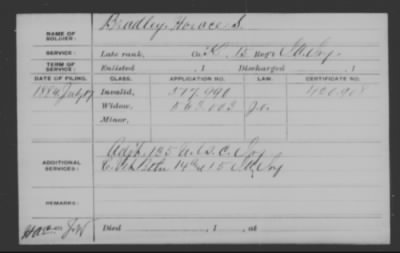 NAME OF SOLDIER: Bradley, Horace S.
SERVICE: Late rank, Co. K, 15 Reg't Ia. Inf.
TERM OF SERVICE: Enlisted , 1 Discharged , 1
DATE OF FILING. CLASS. APPLICATION NO. LAW. CERTIFICATE NO.
1884 July Invalid, 517.990
Widow,
Minor,
ADDITIONAL SERVICES: Adjt. 135 U.S.C. Inf
14 15 Inf
REMARKS:
Died , 1 , at